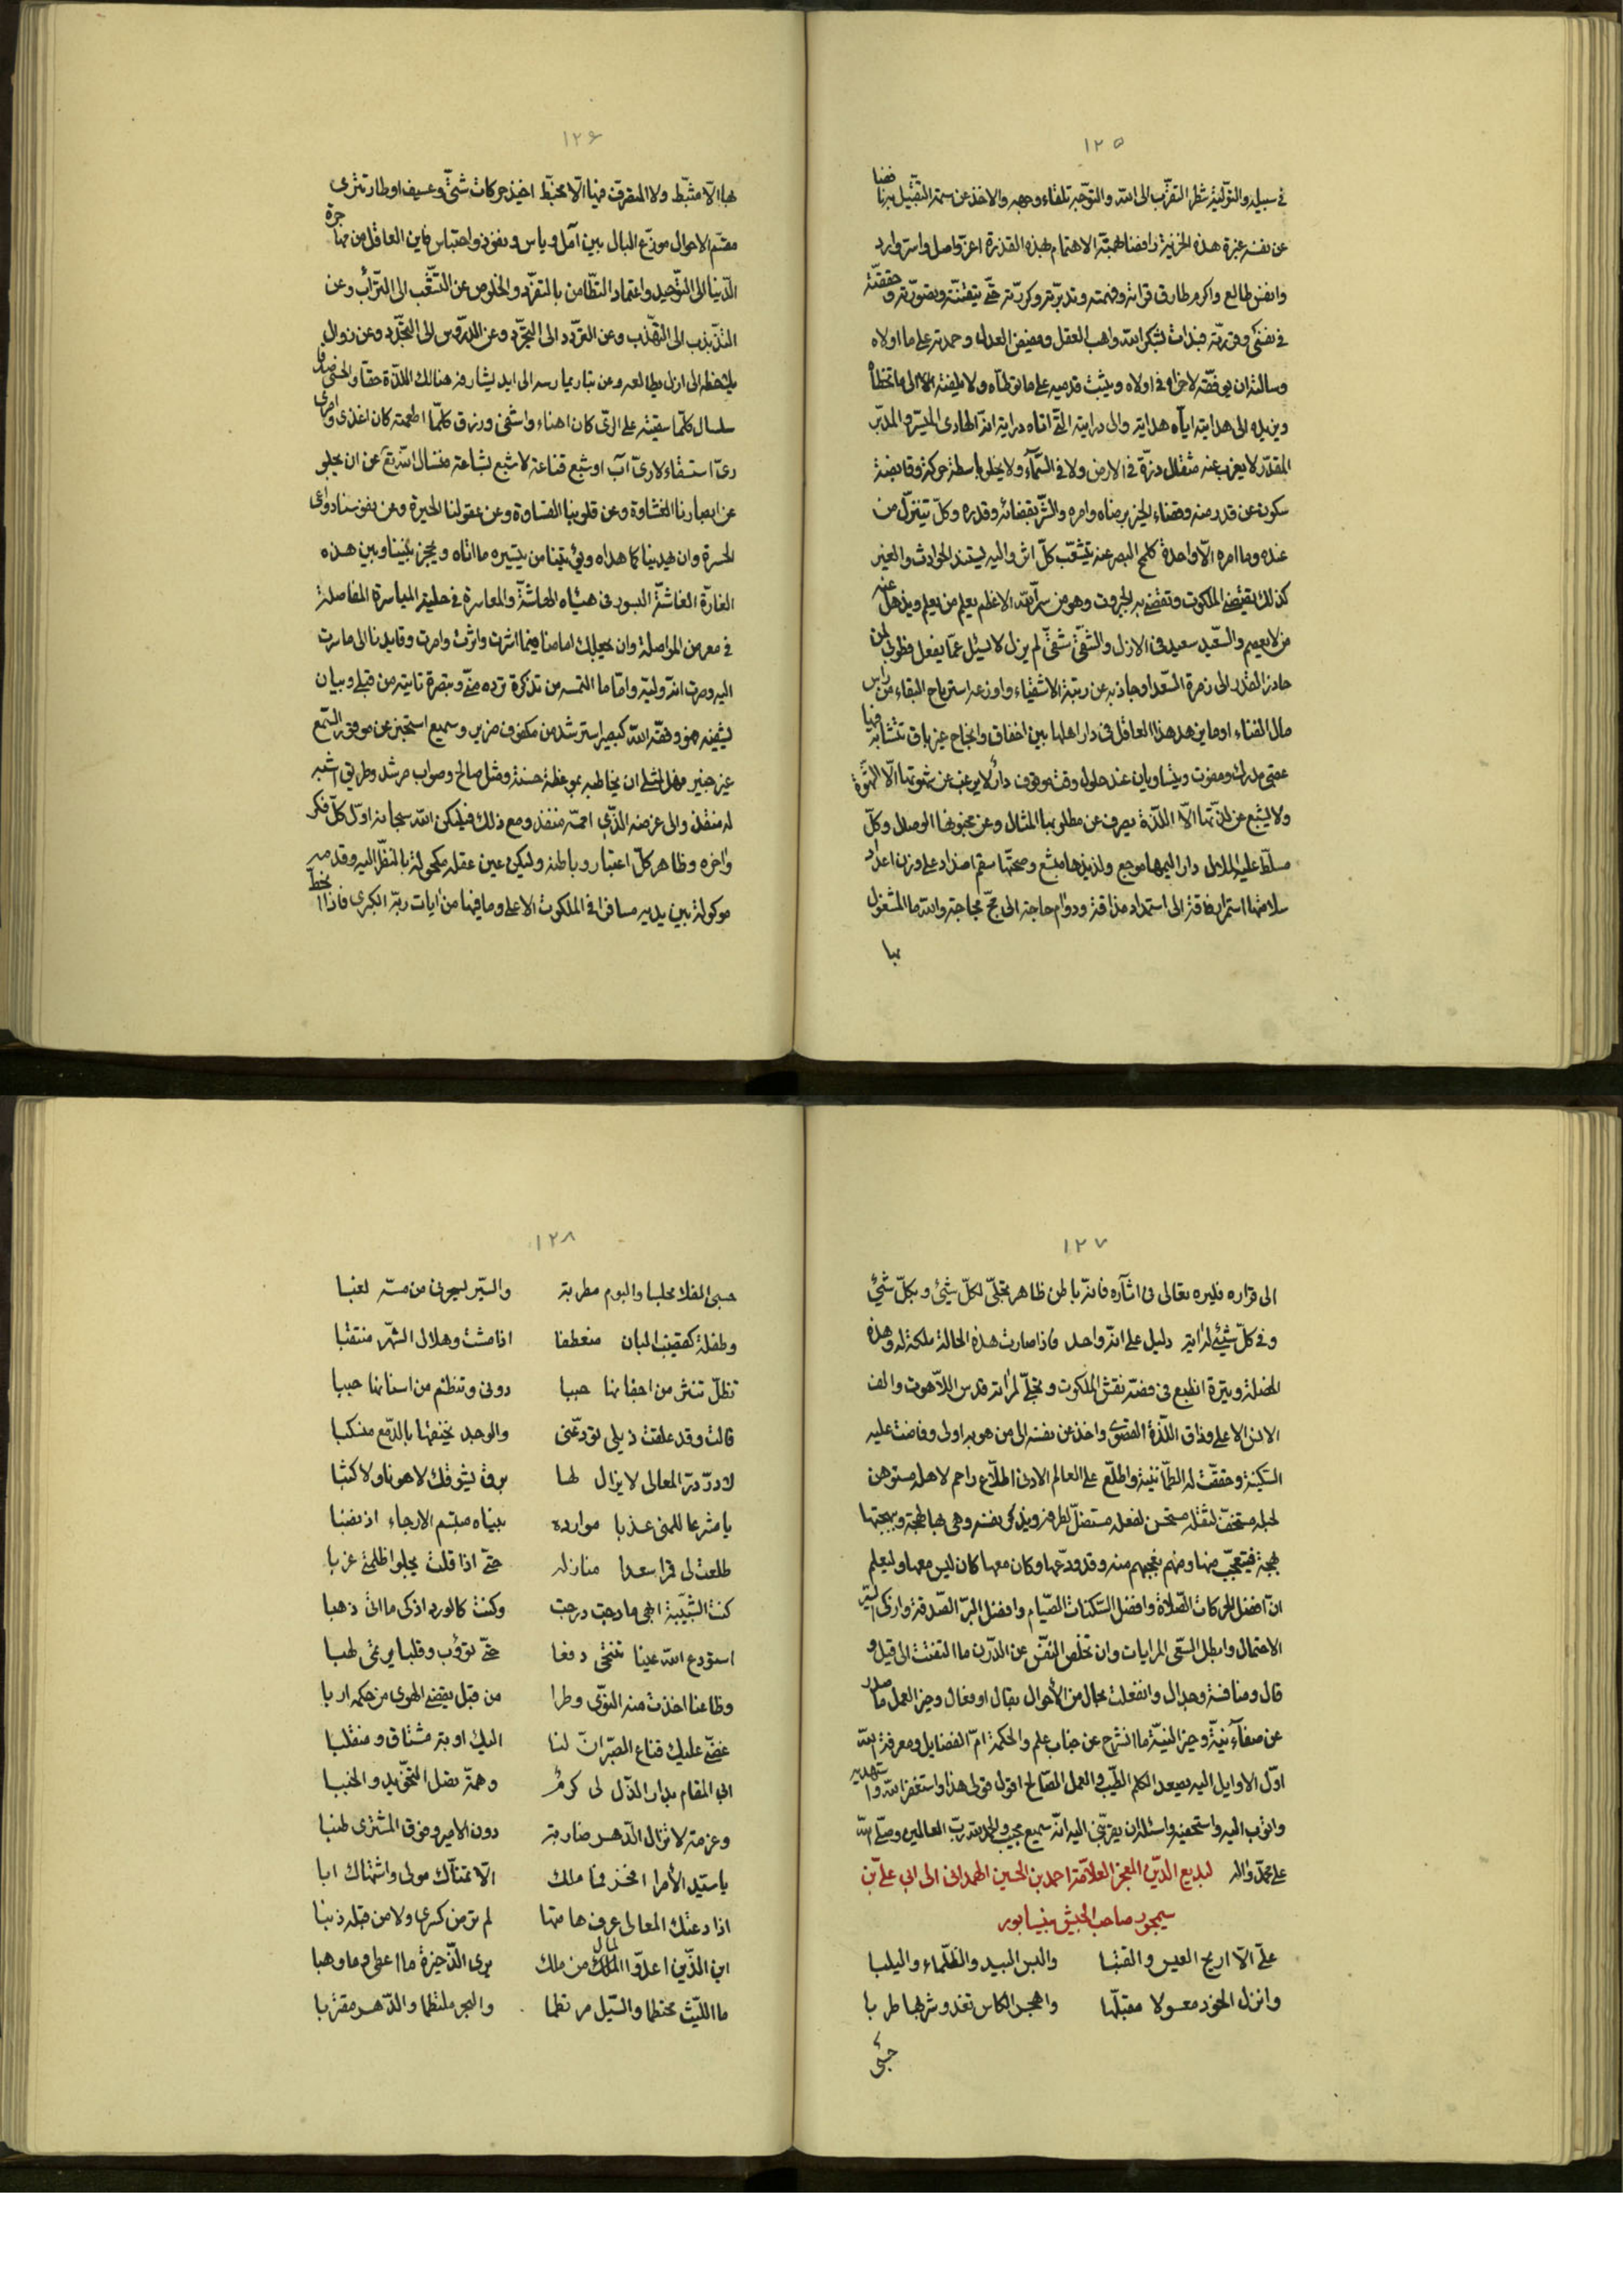 ١٢٥
في سبيله والتولية شطر التقرب الى الله والتوجه تلقاء وجهه والاخذ عن سمة التقبيل برنا فضا
عن نفسه غبرة هذه الخزية رافضا لهمته الاهتمام بهذه القذرة اعز واصل واسر وارد
وانفس طالع واكرم طارق قرأته وفهمته وتدبرته وكررته حتى تيقنته وتصورته وحققته
في نفسي وقررته فبدأت بشكر الله واهب العقل ومفيض العدل وحمدته على ما اولاه
وسالته ان يوفقه لاخراه في اولاه ويثبت قدميه على ما توطاه ولا يلفته الى ما تخطاه
ويزيده الى هدايته اياه هداية والى درايته التي اتاه دراية انه الهادي الميسر والمدبر
المقدر لا يعزب عنه مثقال ذرة في الارض ولا في السماء ولا يخلو باسطة حركة وقابضة
سكون عن قدر منه وقضاء الخير برضاه وامره والشر بقضائه وقدره وكل يتنزل من
عنده وما امره الا واحدة كلمح البصر عنه يتشعب كل اثر واليه يستند الحوادث والغير
كذلك يقضى الملكوت وتقضى به الجبروت وهو من سر الله الاعظم يعلم من يعلم ويذهل عنه
من لا يعصم والسعيد سعيد في الازل والشقي شقي لم يزل لا يسئل عما يفعل فطوبى لمن
حاد به القدر الى زمرة السعدا وجاذ به عن رتبة الاشقياء واوزعه استرباح البقاء من راس
مال الفناء وما نزهه هذا العاقل في دار اهلها بين اخفاق وانجاح غير باق تتشابه فيها
عقبى مدرك ومفوت ويتساويان عند حلول وقت موقوت دار لا يرغب عن شهوتها الا الشهوة
ولا يشبع عن لذتها الا اللذة يصرف عن مطلوبها المثال وعن محبوبها الوصال وكل
مسلط عليه الملال دار اليمها موجع ولذيذها مشبع وصحتها سقم اضداد على وزن اعداد
سلامتها استمرار فاقة الى استمداد مذاقة ودوام حاجة الى مج مجاجة والله ما المشغول
بها
١٢٦
بها الا مثبط ولا المتصرف فيها الا مخبط اخيذ حركات شتى وعسيف اوطار تترى
مقسم الاحوال موزع البال بين امل وياس وفوز واحتباس واين العاقل من مهاجرة
الدنيا الى التوحيد واعتماد النظام من بالتفرد والخلوص عن التشعب الى التراب وعن
التذبذب الى التهذب وعن التردد الى التجرد وعن اللدوس الى التجرد وعن زوال
يلحظه الى ازل يطالعه وعن تبار يمارسه الى ابد يشارفه هنالك اللذة حقا والحسن صدقا
سلسال كلما سقيته على الري كان اهناء واشفى ورزق كلما اطعمته كان اغذى وامرى
رى استسقاء لا رى اب وشبع قناعة لا شبع بشاعة فنسال الله تع عن ان يجلو
عن ابصارنا الغشاوة وعن قلوبنا القساوة وعن عقولنا الحيرة وعن نفوسنا دواعى
الحسرة وان يهدينا كما هداه ويؤتينا من تيسيره ما اتاه ويحجز بيننا وبين هذه
الغارة الغاشة البسور في هيئاه الهاشة والمعاسرة في حلية المياسرة المفاصلة
في معرض المواصلة وان يجعلك امامنا فيما اثرت واثرت وامرت وقايدنا الى ما سرت
اليه وصرت انه وليه واما ما التمسه من تذكرة ترده مني وتبصرة تاتيه من قبلي وبيان
يشفيه هو وفقه الله كبصير استرشد من مكفوف ضرير وسميع استخبر عن موقور السمع
غير خبير فهل لمثلي ان يخاطبه بموعظة حسنة ومثل صالح وصواب مرشد وطريق اشبه
له منقذ والى غرضه الذي امه منفذ ومع ذلك فليكن الله سبحانه اول كل فكر
واخره وظاهر كل اعتبار وباطنه وليكن عين عقله مكحولة بالنظر اليه وقدميه
موكولة بين يديه مسافرا في الملكوت الاعلى وما فيها من ايات ربه الكبرى فاذا انحط
١٢٧
الى قراره فليره تعالى في اثاره فانه باطن ظاهر تجلى لكل شيئ وبكل شيئ
وفي كل شيئ له اية دليل على انه واحد فاذا صارت هذه الحالة ملكة له وهذه
الخصلة وتيرة انطبع في فصه نقش الملكوت وتجلى لمراته قدس اللاهوت والف
الانس الاعلى وذاق اللذة القصوى واخذ عن نفسه الى من هو به اولى وفاضت عليه
السكينة وحققت له الطمانينة واطلع على العالم الادنى اطلاع راحم لاهله مستوهن
لحبله مستخف لثقله مستحسن لفعله مستضل لطرقه ويذكر نفسه وهي بها لهجة وببهجتها
بهجة فيتعجب منها ومنهم تعجبهم منه وقد ودعها وكان معها كان ليس معها وليعلم
ان افضل الحركات الصلاة وافضل السكنات الصيام وافضل البر الصدقة وازكى السر
الاحتمال وابطل السعي المرايات وان تخلص النفس عن الدرن ما التفتت الى قيل و
قال ومنافسة وجدال وانفعلت بحال من الأحوال بقال او فعال وخير العمل ما صدر
عن صفاء نية وخير النية ما انشرح عن جناب علم والحكمة ام الفضايل ومعرفة الله
اول الاوايل اليه يصعد الكلم الطيب والعمل الصالح اقول قولى هذا واستغفر الله واستهديه
واتوب اليه واستكفيه واسئله ان يقربني اليه انه سميع مجيب والحمد لله رب العالمين وصلى الله
على محمد واله لبديع الدين المعجز العلامة احمد بن الحسين الهمداني الى ابي على بن
سيمجور صاحب الجيش بنيسابور
على الا اريح العيس والقتبا والبس البيد والظلماء واليلبا
وانزل الخود معسولا مقبلها واهجر الكاس تغدو شربها طربا
حسبى
١٢٨
حسبى الفلا مجلسا والبوم مطربة والسير يسكرنى من مسه لغبا
وطفلة كقضيب البان منعطفا اذا مشت وهلال الشهر منتقبا
تظل تنثر من اجفانها حببا دونى وتنظم من اسنانها حببا
قالت وقد علقت ذيلى تودعنى والوجد يخنقها بالدمع منسكبا
لا در در المعالى لا يزال لها برق يشوقك لا هونا ولا كثبا
يا مشرعا للمنى عذبا موارده بيناه مبتسم الارجاء اذ نضبا
طلعت لى قمرا سعدا منازله حتى اذا قلت يجلو ظلمتى غربا
كنت الشبيبة ابهى ما دجت درجت وكنت كالورد اذكى ما اتى ذهبا
استودع الله عينا تنتحى دفعا حتى تؤوب وقلبا يرتمى لهبا
وظاعنا اخذت منه النوى وطرا من قبل يقضى الهوى من حكمه اربا
غضى عليك قناع الصبر ان لنا اليك اوبة مشتاق ومنقلبا
ابى المقام بدار الذل لى كرم وهمة تصل التخويد والخببا
وعزمة لا تزال الدهر ضاربة دون الامير وفوق المشترى طنبا
يا سيد الأمرا افخر فما ملك الا تمناك مولى واشتهاك ابا
اذا دعتك المعالى عرف هامتها لم ترض كسرى ولا من قبله ذنبا
اين الذين اعدوا المال من ملك يرى الذخيرة ما اعطى وما وهبا
ما الليث مختطما والسيل مرتطما والبحر ملتطما والدهر مقتربا